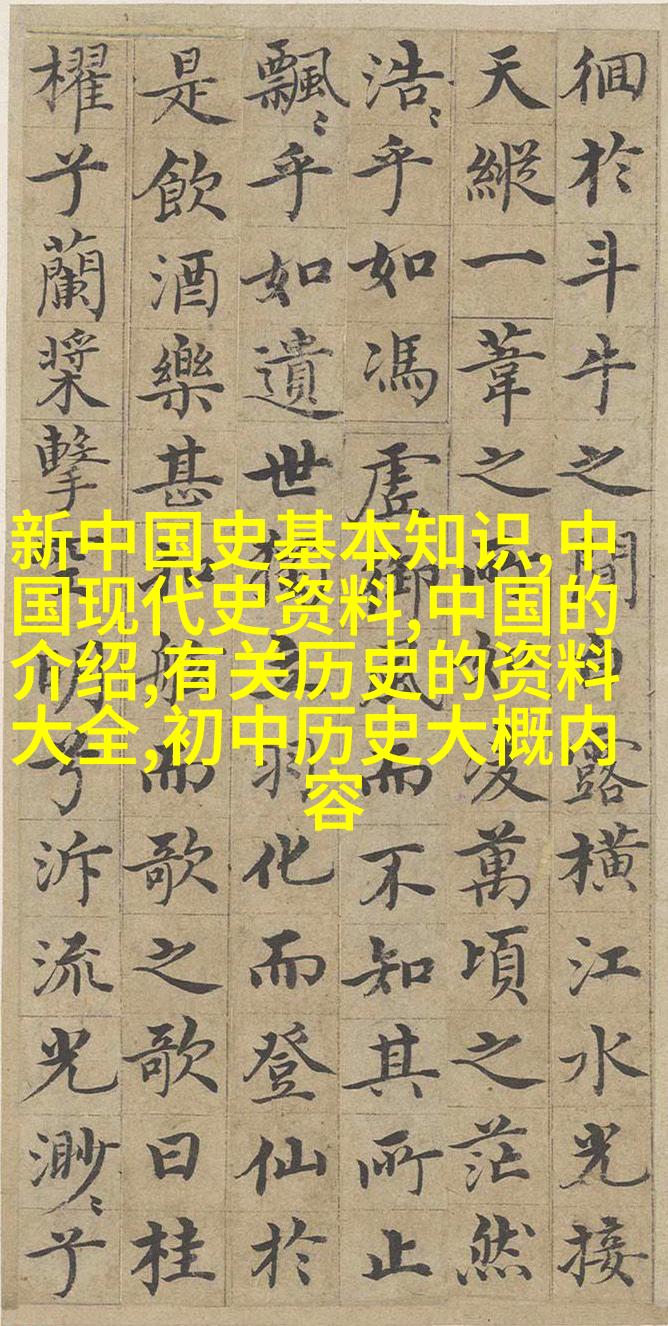 徊於斗牛之間露橫江水光接
天縱一葦之凌萬頃之茫然
浩〻乎如馮虛御風而不知其所止
飄〻乎如遺世羽化而登仙於
是飲酒樂甚舷而歌之歌曰桂
櫂兮蘭槳擊明兮泝流光渺〻兮
新中国史基本知识,中
国现代史资料,中国的
介绍,有关历史的资料
大全,初中历史大概内
容